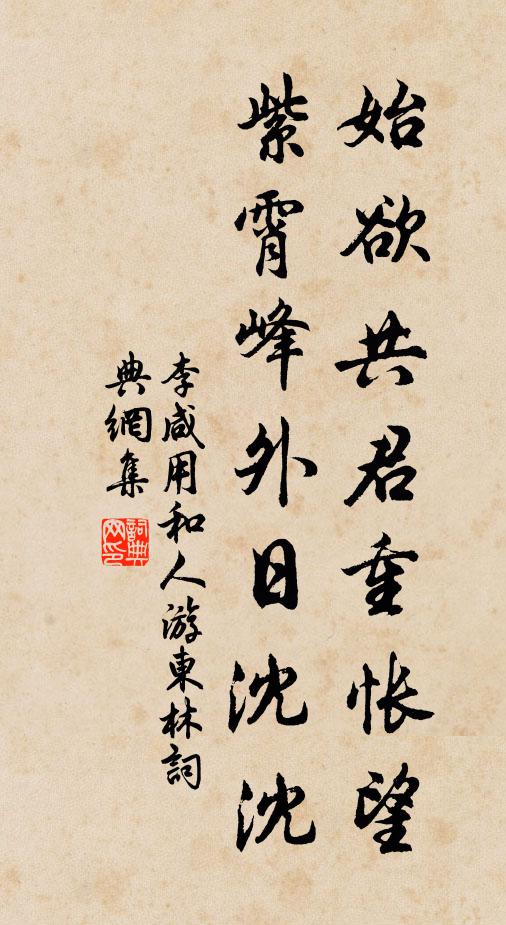 始欲共君重怅望
紫霄峰外日沈沈
李咸用和人游東林詞
典網集
詞典網印